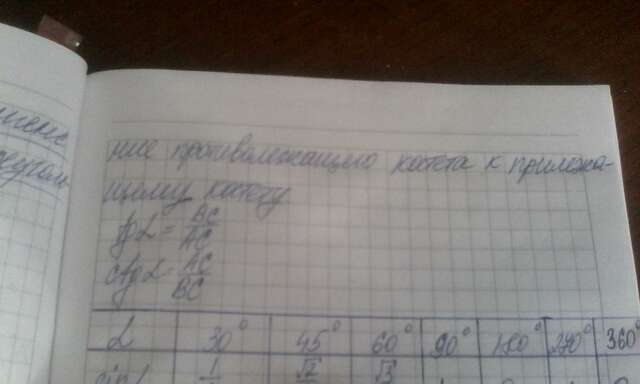 ние противолежащего катета к прилежа-
щему катету
tg α = BC/AC
ctg α = AC/BC
α 30° 45° 60° 90° 180° 270° 360°
sin α 1/2 √2 √3